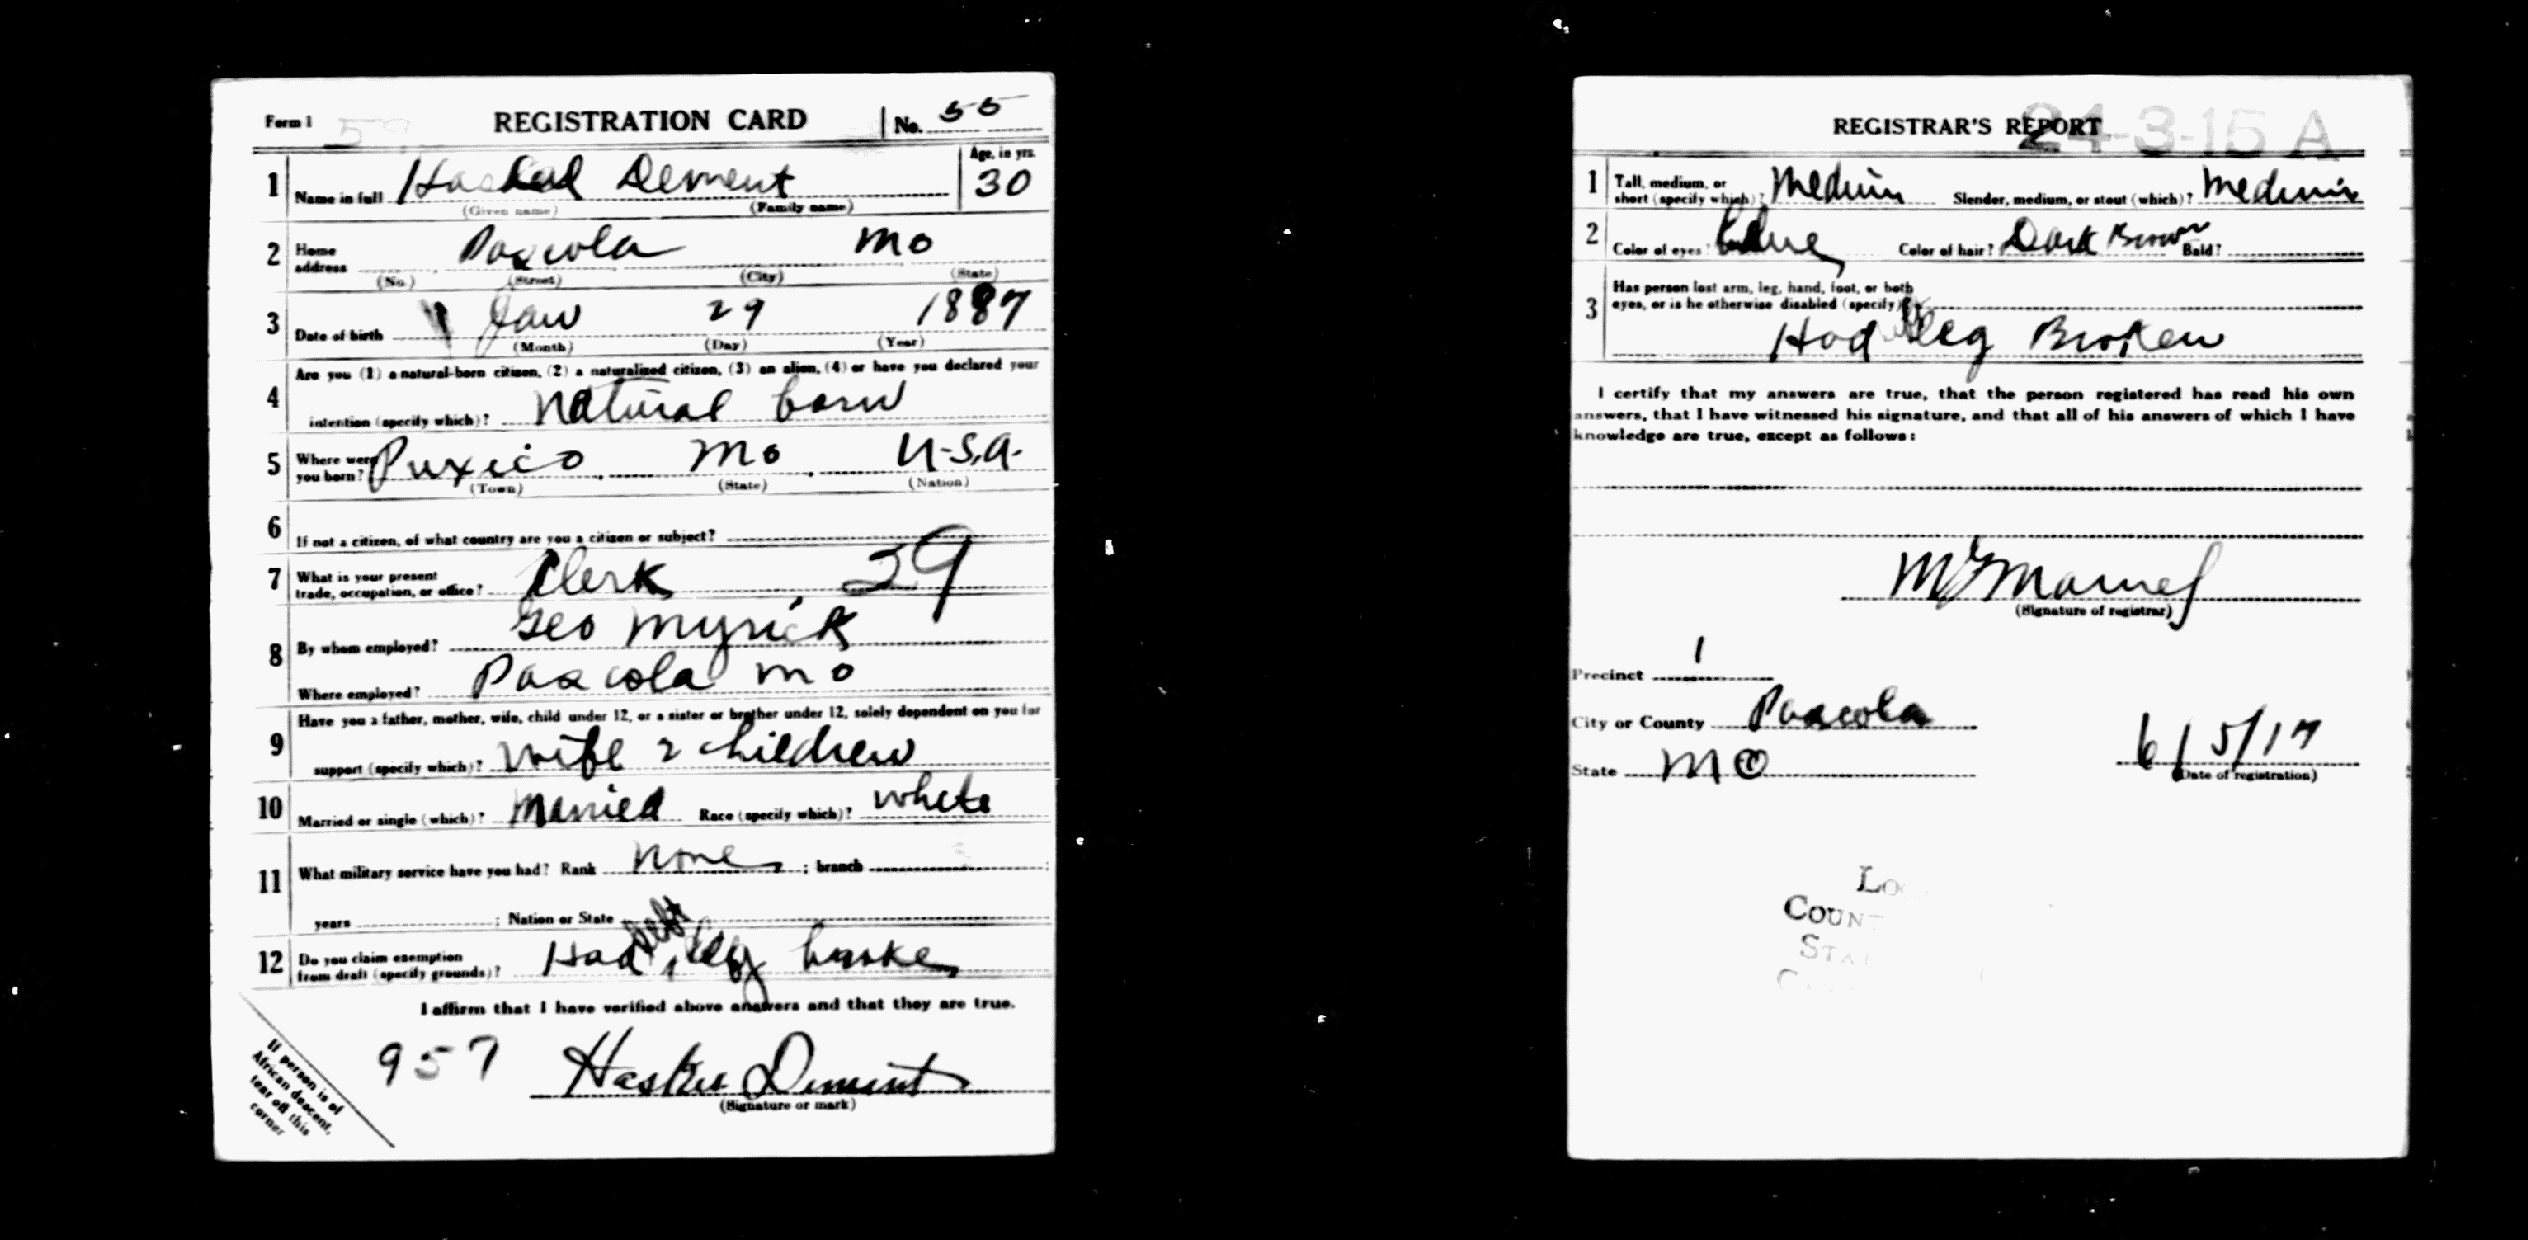 Form 1 59 REGISTRATION CARD No. 55
1 Name in full Haskel Dement Age, in yrs. 30
(Given name) (Family name)
2 Home address Pascola Mo
(No.) (Street) (City) (State)
3 Date of birth Jan 29 1887
(Month) (Day) (Year)
4 Are you (1) a natural-born citizen, (2) a naturalized citizen, (3) an alien, (4) or have you declared your
intention (specify which)? Natural born
5 Where were you born? Puxico Mo U.S.A.
(Town) (State) (Nation)
6 If not a citizen, of what country are you a citizen or subject?
7 What is your present trade, occupation, or office? Clerk 29
8 By whom employed? Geo Myrick
Where employed? Pascola Mo
9 Have you a father, mother, wife, child under 12, or a sister or brother under 12, solely dependent on you for
support (specify which)? Wife 2 children
10 Married or single (which)? Married Race (specify which)? White
11 What military service have you had? Rank None ; branch ;
years ; Nation or State
12 Do you claim exemption from draft (specify grounds)? Had left leg broke
I affirm that I have verified above answers and that they are true.
957 Haskel Dement
(Signature or mark)
If person is of
African descent,
tear off this
corner
REGISTRAR'S REPORT
24-3-15 A
1 Tall, medium, or short (specify which)? Medium Slender, medium, or stout (which)? Medium
2 Color of eyes? Blue Color of hair? Dark Brown Bald?
3 Has person lost arm, leg, hand, foot, or both
eyes, or is he otherwise disabled (specify)?
Had leg Broken
I certify that my answers are true, that the person registered has read his own
answers, that I have witnessed his signature, and that all of his answers of which I have
knowledge are true, except as follows:
(Signature of registrar)
Precinct 1
City or County Pascola
State Mo 6/5/17
(Date of registration)